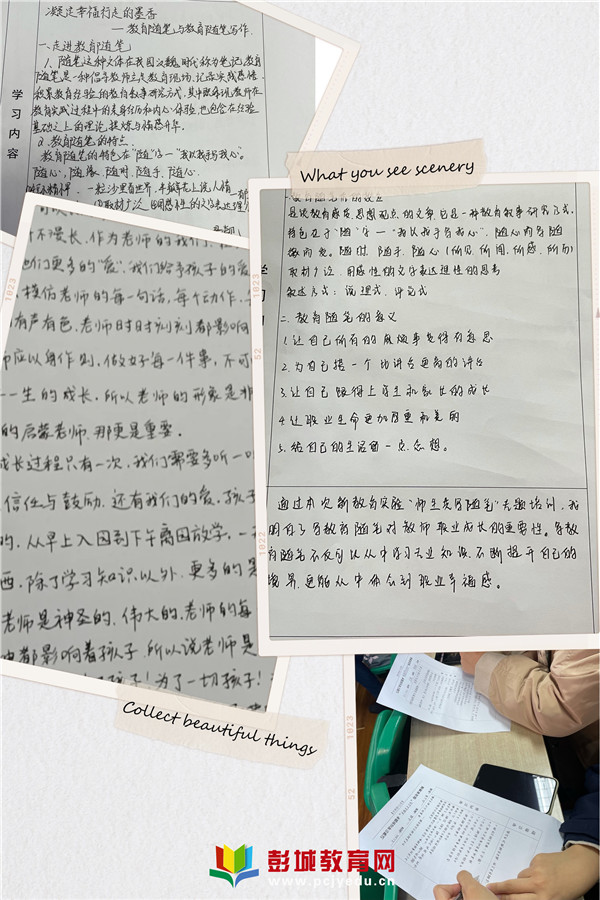 凝送幸福行走的墨香
——教育随笔与教育随笔写作
一、走进教育随笔
1. 随笔这种文体在我国汉魏时代称为笔记,教育
随笔是一种倡导教师立足教育现场,记录实践感悟
积累教育经验的教育叙事研究方式,其中既体现教师在
教育实践过程中的亲身经历和内心体验,也包含在经验
基础之上的理论提炼与情感升华。
2. 教育随笔的特点
教育随笔的特色在"随"字一"我以我手写我心"。
随心,随缘、随时、随手、随心
一粒沙里看世界,半瓣花上说人情
学习内容
What you see scenery
不漫长,作为老师的我们
他们更多的"爱",我们给予孩子的爱
模仿老师的每一句话,每个动作
有声有色,老师时时刻刻都影响
师应以身作则,做好每一件事,不可
一生的成长,所以老师的形象是非
的启蒙老师,那更是重要。
成长过程只有一次,我们需要多听一
信任与鼓励,还有我们的爱,孩子
的,从早上入园到下午离园放学,一
西,除了学习知识以外,更多的是
老师是神圣的,伟大的,老师的每
都影响着孩子,所以说老师是
孩子!为了一切孩子!
是谈教育感发、思想观点的文章,它是一种教育叙事研究方式,
特色在于"随"字一"我以我手写我心",随心内容随
缘而发。随时、随手、随心(所见、所闻、所感、所历)
取材广泛、用感性的文字表达理性的思考
叙述方式:说理式、评完式
二、教育随笔的意义
1. 让自己所有的麻烦事变得有意思
2. 为自己搭一个比讲台更高的讲台
3. 让自己跟得上学生和家长的成长
4. 让职业生命更加厚重而美丽
5. 给自己的生活留一点念想。
通过本次新教育实验"师生共写随笔"专题培训,我
明白了写教育随笔对教师职业成长的重要性。写教
育随笔不仅可以从中学习专业知识,不断提升自己的
境界,更能从中体会到职业幸福感。
Collect beautiful things
彭城教育网
www.pcjyedu.cn